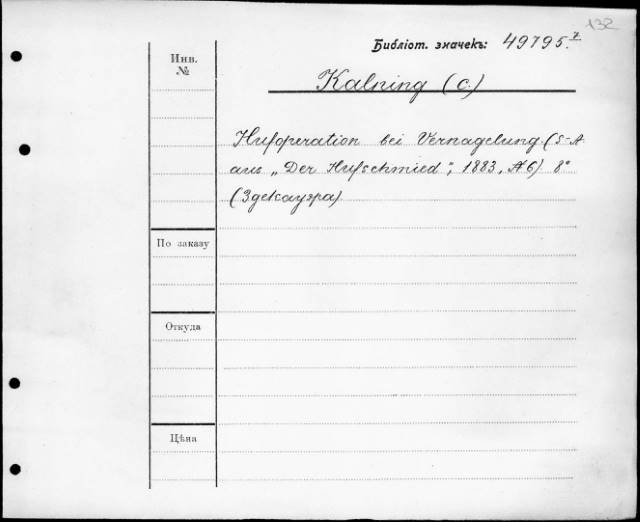 132
Библіот. значекъ: 49795.7
Инв.
№
Kalning (c.)
Hufoperation bei Vernagelung. (S-A
aus „Der Hufschmied“, 1883, №6) 8°
(Здекауэра)
По заказу
Откуда
Цѣна